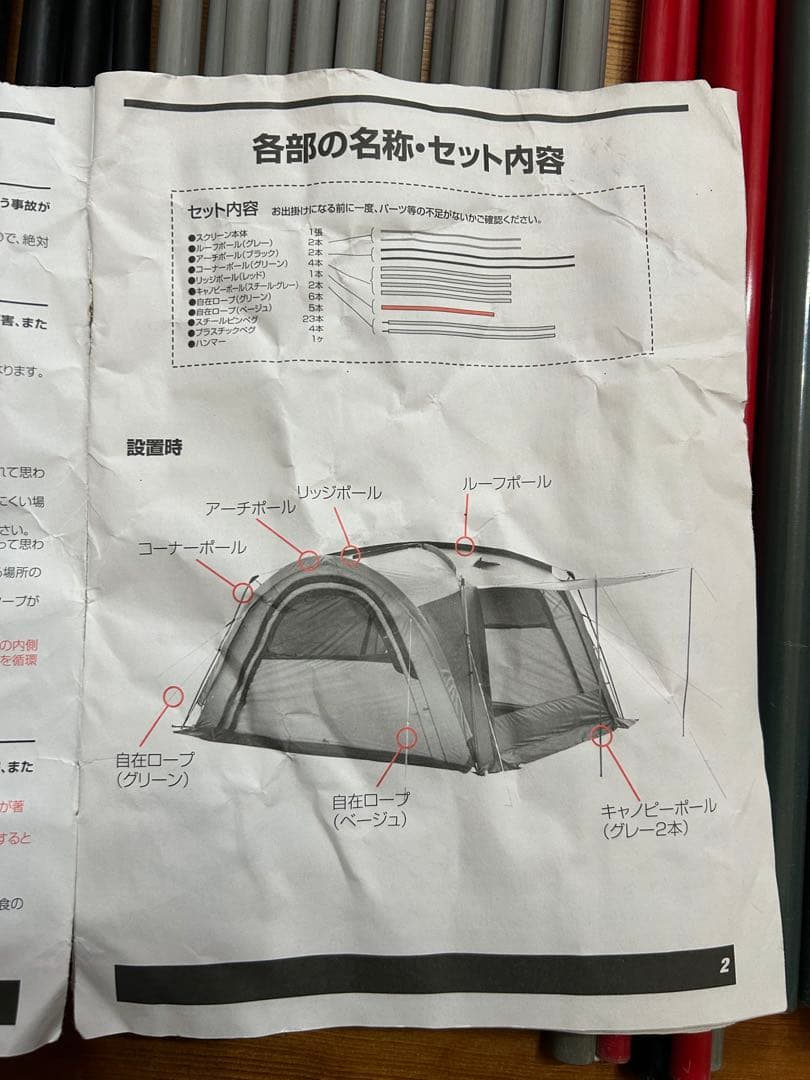 う事故が
ので、絶対
害、また
なります。
れて思わ
にくい場
さい。
って思わ
場所の
ープが
の内側
を循環
、また
が著
すると
食の
各部の名称・セット内容
セット内容 お出掛けになる前に一度、パーツ等の不足がないかご確認ください。
●スクリーン本体 1張
●ルーフポール(グレー) 2本
●アーチポール(ブラック) 2本
●コーナーポール(グリーン) 4本
●リッジポール(レッド) 1本
●キャノピーポール(スチール・グレー) 2本
●自在ロープ(グリーン) 6本
●自在ロープ(ベージュ) 5本
●スチールピンペグ 23本
●プラスチックペグ 4本
●ハンマー 1ヶ
設置時
ルーフポール
リッジポール
アーチポール
コーナーポール
自在ロープ
(グリーン)
自在ロープ
(ベージュ)
キャノピーポール
(グレー2本)
2